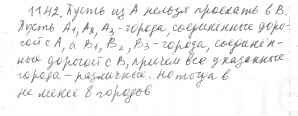 11.42. Пусть из А нельзя проехать в В.
Пусть А1, А2, А3 - города, соединённые доро-
гой с А, а В1, В2, В3 - города, соединён-
ные дорогой с В, причем все указанные
города - различны. Но тогда в
не менее 8 городов